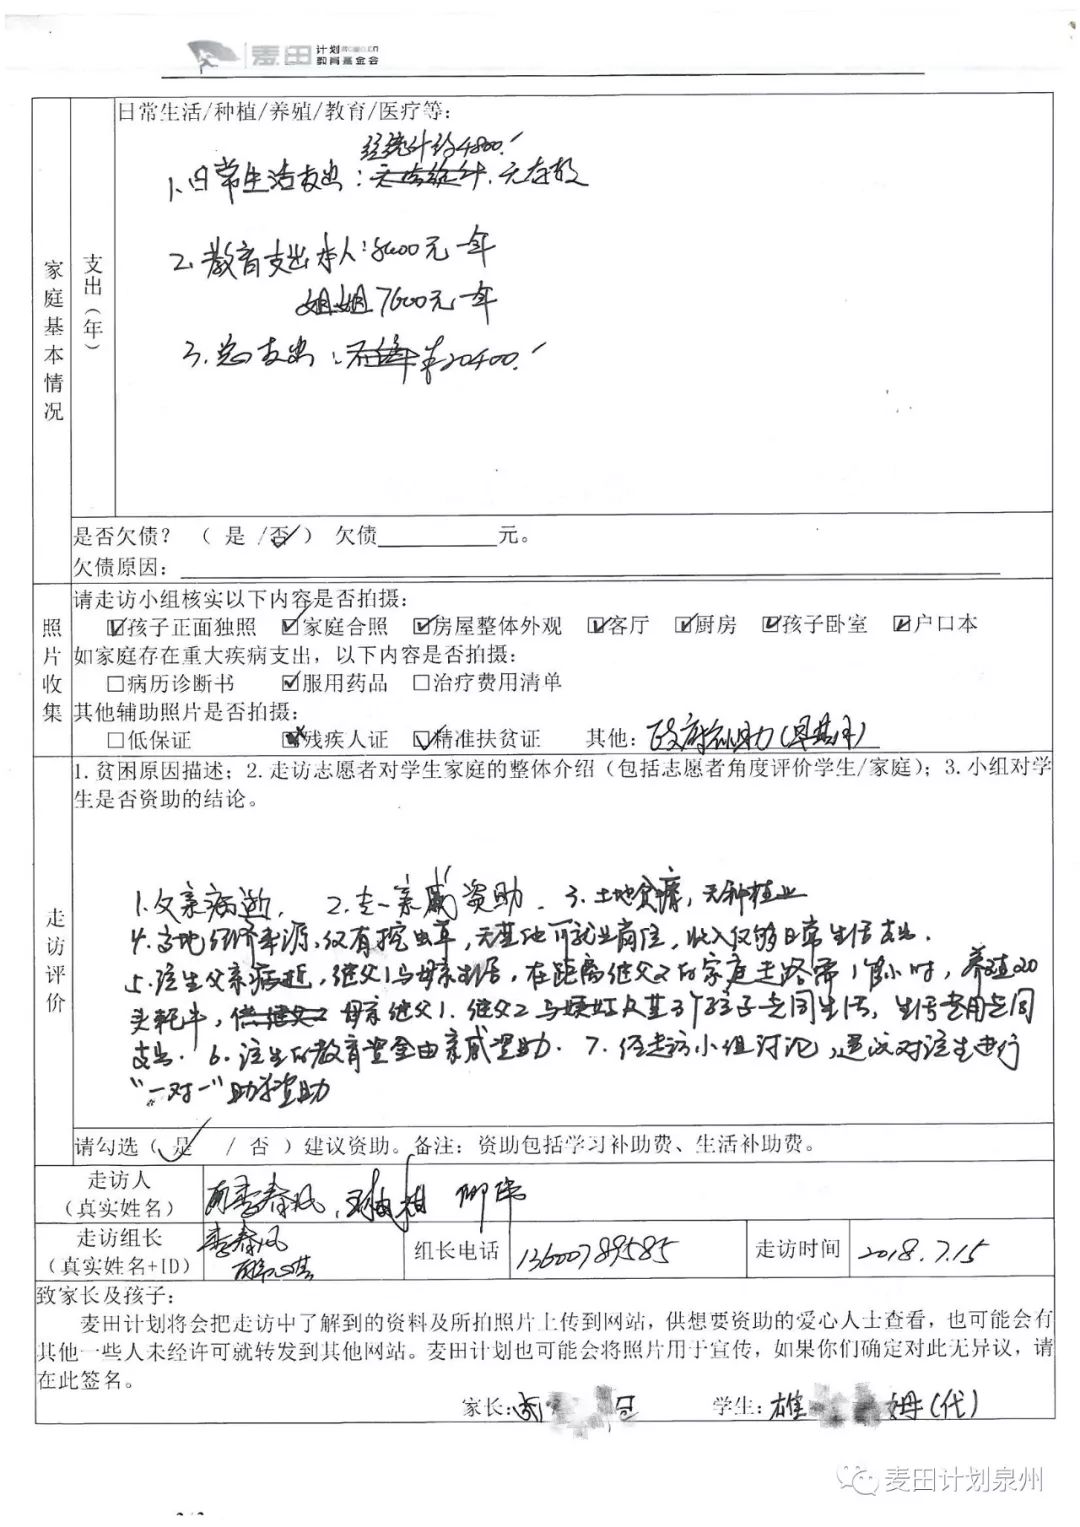 麦田 计划
教育基金会
家庭基本情况
支出（年）
日常生活/种植/养殖/教育/医疗等:
经统计约4800.
1.日常生活支出: 无存款
2.教育支出本人:8000元一年
姐姐7600元一年
3.总支出: 20400.
是否欠债？（ 是 /否 ） 欠债 元。
欠债原因:
照片收集
请走访小组核实以下内容是否拍摄:
☑孩子正面独照 ☑家庭合照 ☑房屋整体外观 ☑客厅 ☑厨房 ☑孩子卧室 ☑户口本
如家庭存在重大疾病支出，以下内容是否拍摄:
□病历诊断书 ☑服用药品 □治疗费用清单
其他辅助照片是否拍摄:
□低保证 残疾人证 ☑精准扶贫证 其他: 政府
走访评价
1.贫困原因描述；2.走访志愿者对学生家庭的整体介绍（包括志愿者角度评价学生/家庭）；3.小组对学
生是否资助的结论。
1.父亲病逝. 2. 亲戚资助. 3.土地贫瘠，无种植业
4.当地经济来源，仅有挖虫草，无其他可就业岗位，收入仅够日常生活支出.
5.该生父亲病逝，继父1与母亲 ，在距离继父2的家庭走路需1个小时，养殖20
头牦牛， 母亲继父1.继父2与 及其3个孩子共同生活，生活费用共同
支出. 6.该生的教育资金由亲戚资助. 7.经走访小组讨论，建议对该生进行
“一对一”助学资助
请勾选（ 是 / 否 ）建议资助。备注: 资助包括学习补助费、生活补助费。
走访人
（真实姓名）
李春风，
走访组长
（真实姓名+ID）
李春风
组长电话
13600789585
走访时间
2018.7.15
致家长及孩子:
麦田计划将会把走访中了解到的资料及所拍照片上传到网站，供想要资助的爱心人士查看，也可能会有
其他一些人未经许可就转发到其他网站。麦田计划也可能会将照片用于宣传，如果你们确定对此无异议，请
在此签名。
家长: 学生: 雄 姆(代)
麦田计划泉州